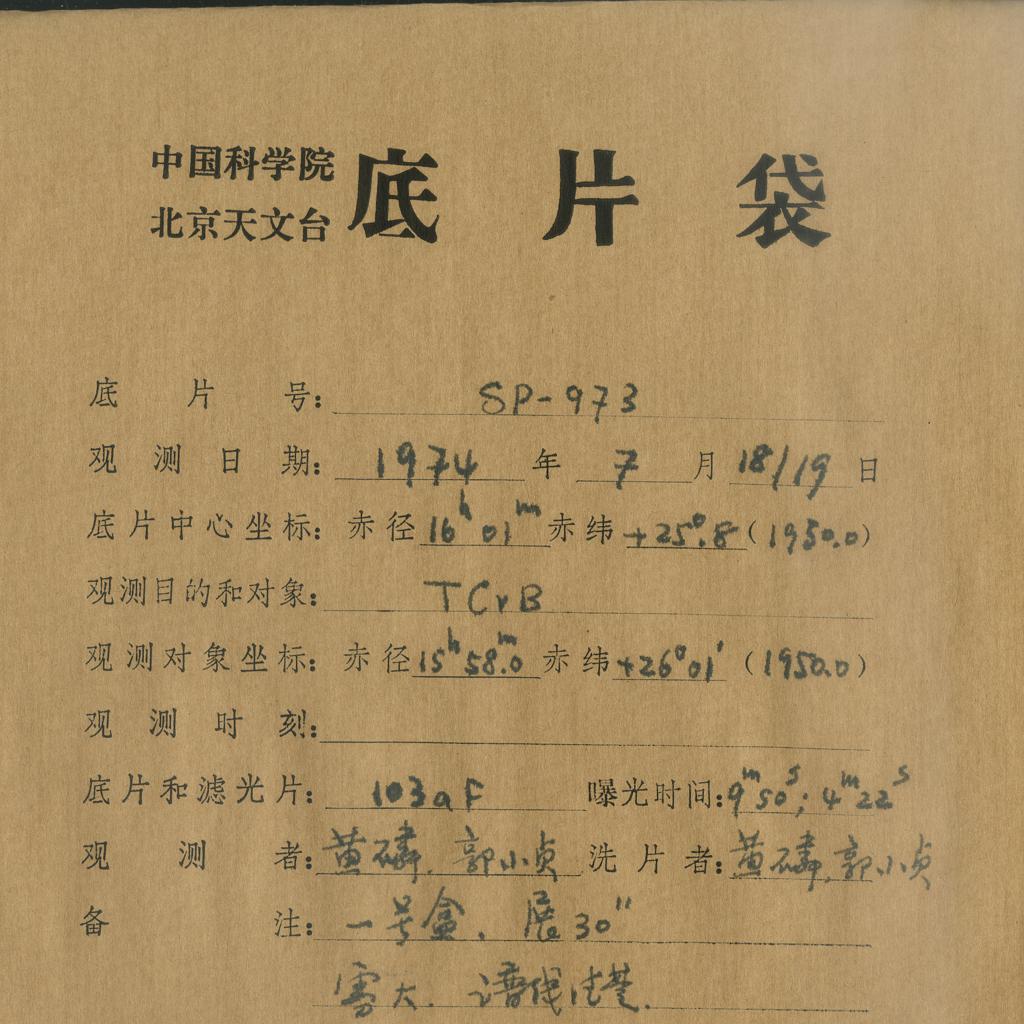 中国科学院
北京天文台
底片袋
底片号: SP-973
观测日期: 1974 年 7 月 18/19 日
底片中心坐标: 赤径 16h 01m 赤纬 +25°.8 (1950.0)
观测目的和对象: T CrB
观测对象坐标: 赤径 15h 58m.0 赤纬 +26°01' (1950.0)
观测时刻:
底片和滤光片: 103aF 曝光时间: 9m50s; 4m22s
观测者: 黄磷. 郭小贞 洗片者: 黄磷, 郭小贞
备注: 一号盒. 展30"
大. 谱线